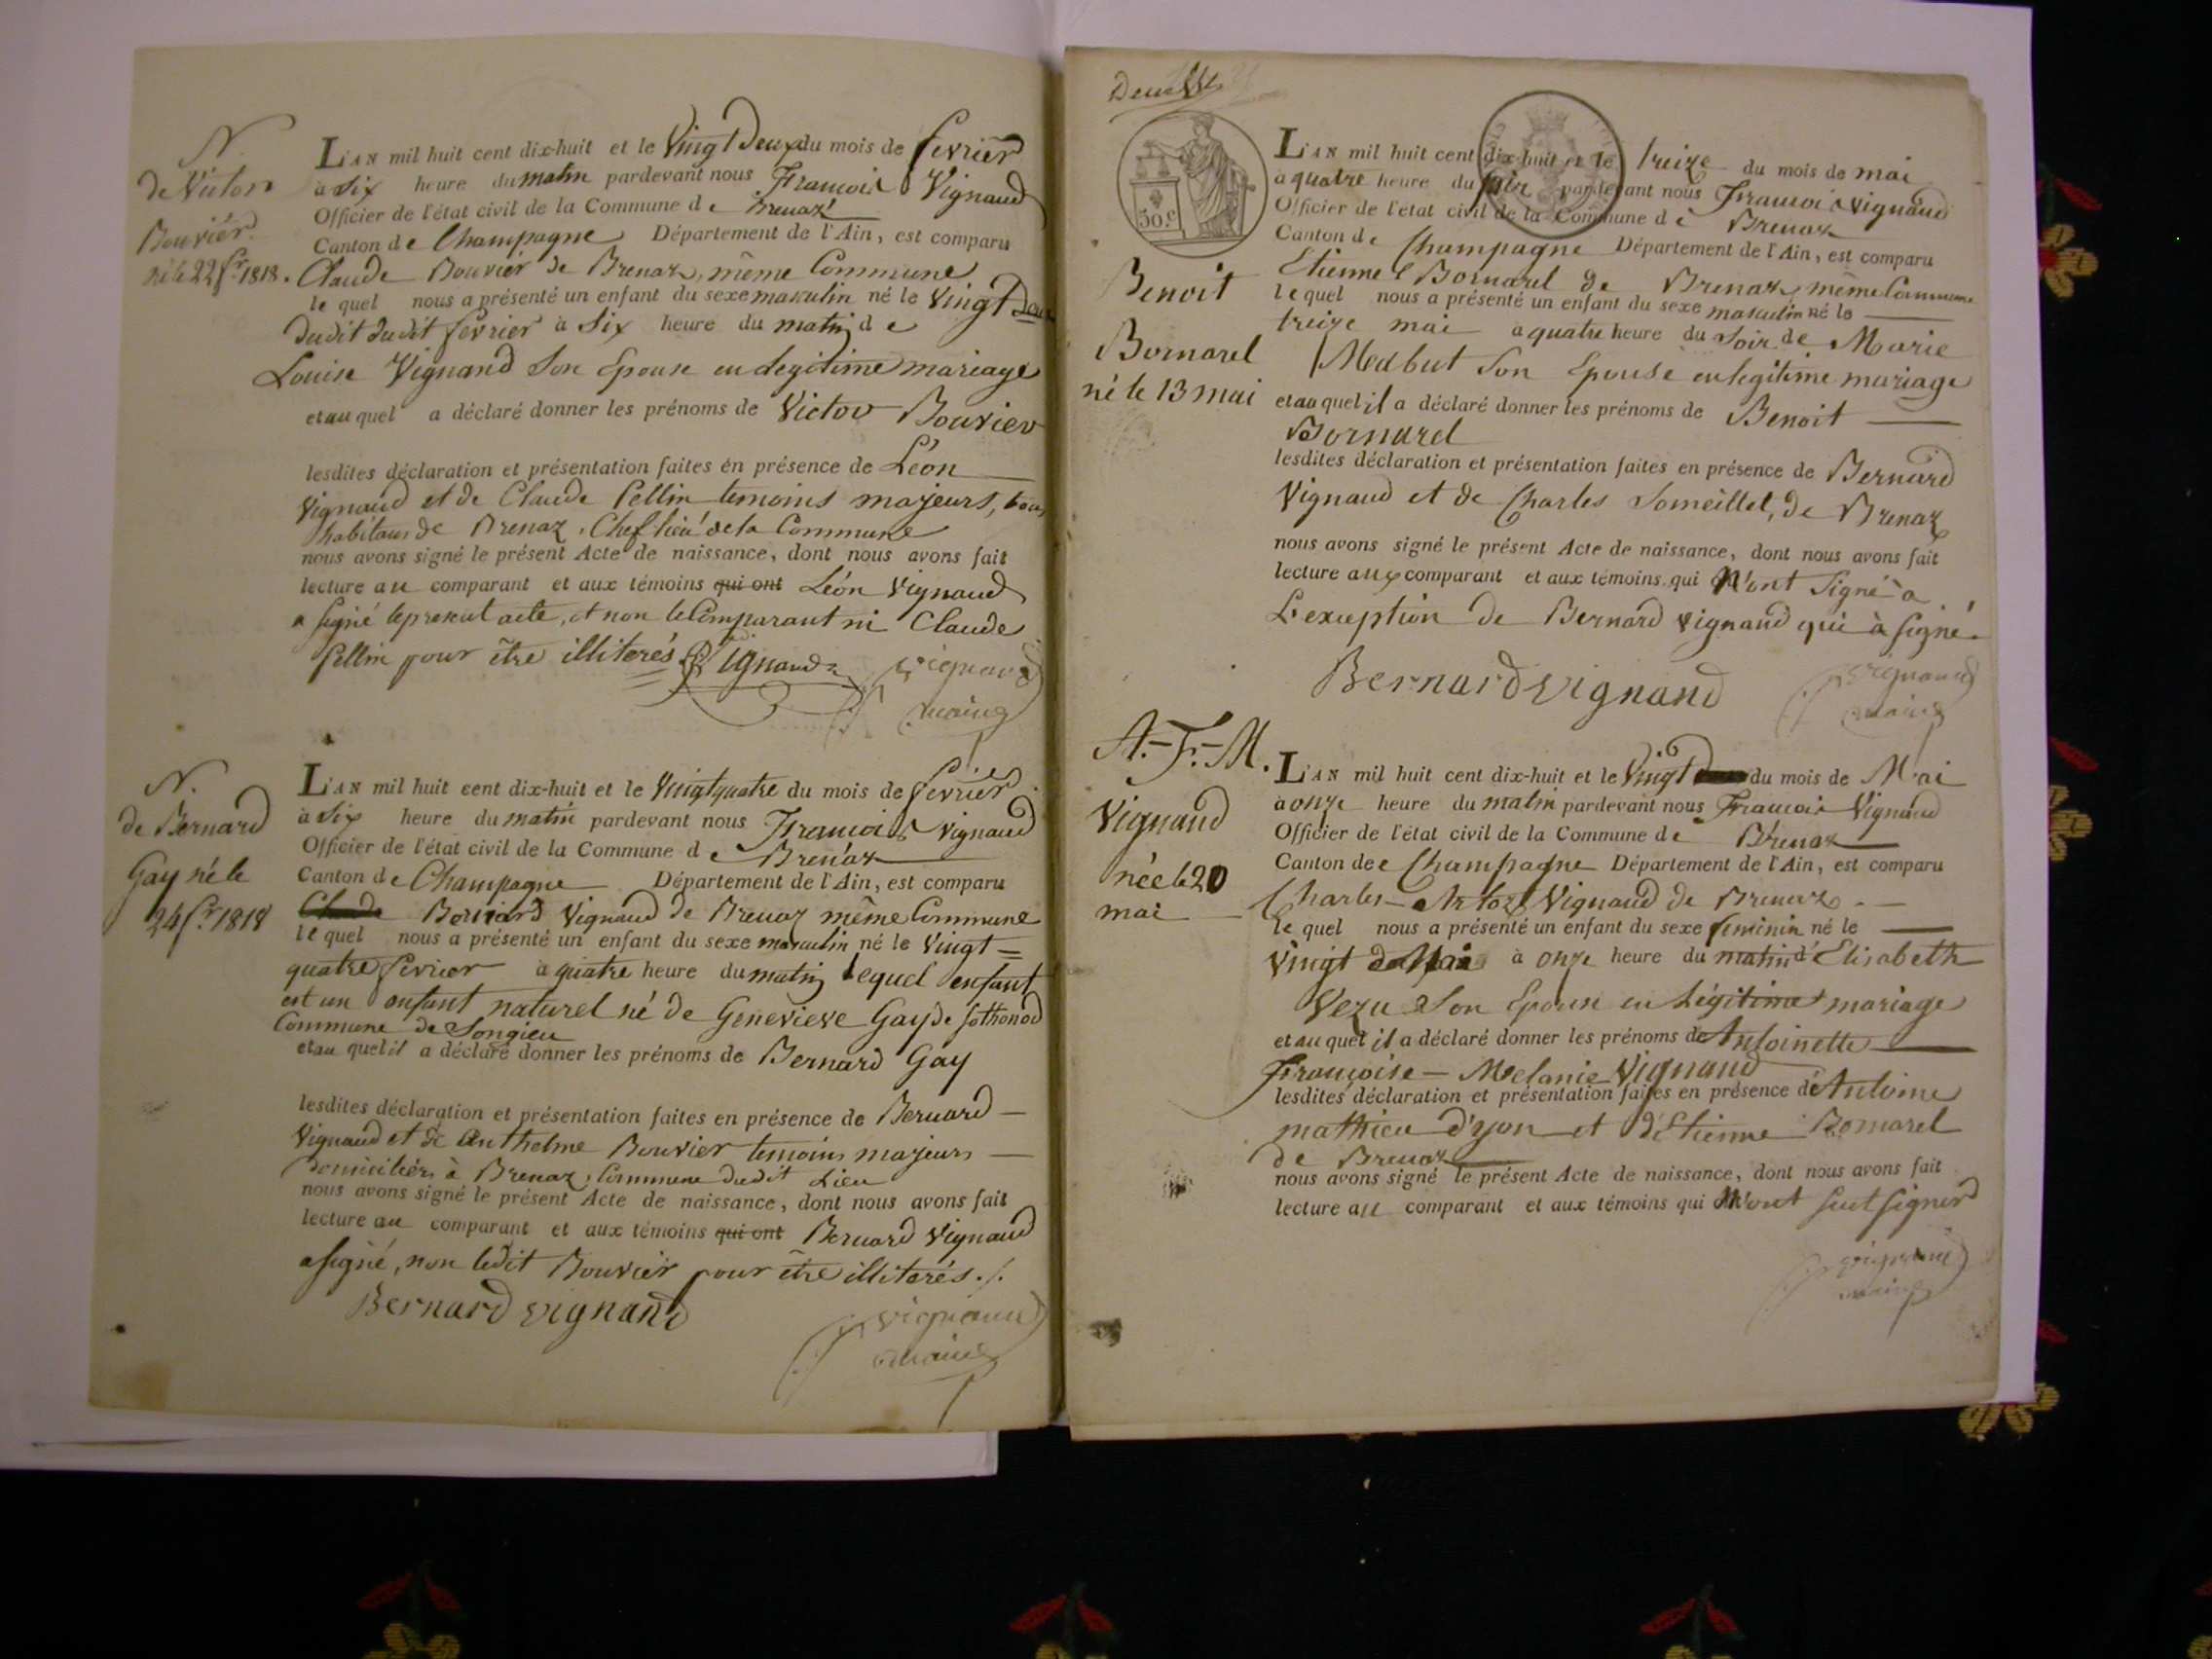 N.
de Victor
Bouvier
né le 22 fr. 1818.
L'AN mil huit cent dix-huit et le Vingt Deux du mois de fevrier
a Six heure du matin pardevant nous François Vignaud
Officier de l'état civil de la Commune de Brenaz
Canton de Champagne Département de l'Ain, est comparu
Claude Bouvier de Brenaz, même Commune
le quel nous a présenté un enfant du sexe masculin né le Vingt Deux
dudit dudit fevrier à Six heure du matin de
Louise Vignand Son Epouse en Legitime mariage
et au quel a déclaré donner les prénoms de Victor Bouvier
lesdites déclaration et présentation faites en présence de Léon
Vignaud et de Claude Pellin temoins majeurs, tous
habitans de Brenaz, Chef lieu de la Commune
nous avons signé le présent Acte de naissance, dont nous avons fait
lecture au comparant et aux témoins qui ont Léon Vignaud
a signé le present acte, et non le Comparant ni Claude
Pellin pour être illiterés Vignaud
vignaud
maire
N.
de Bernard
Gay né le
24 fr. 1818
L'AN mil huit cent dix-huit et le Vingt quatre du mois de fevrier
à Six heure du matin pardevant nous François Vignaud
Officier de l'état civil de la Commune de Brenaz
Canton de Champagne Département de l'Ain, est comparu
Claude Bernard Vignaud de Brenaz même Commune
le quel nous a présenté un enfant du sexe masculin né le Vingt =
quatre fevrier a quatre heure du matin lequel enfant
est un enfant naturel né de Genevieve Gay de Sothonod
Commune de Songieu
et au quel il a déclaré donner les prénoms de Bernard Gay
lesdites déclaration et présentation faites en présence de Bernard
Vignaud et de Anthelme Bouvier temoins majeurs
domiciliés à Brenaz, Commune dudit Lieu
nous avons signé le présent Acte de naissance, dont nous avons fait
lecture au comparant et aux témoins qui ont Bernard Vignaud
a signé, non ledit Bouvier pour être illiterés ./.
Bernard vignand
vignaud
maire
50.c
Benoit
Bornarel
né le 13 mai
L'AN mil huit cent dix-huit et le treize du mois de mai
a quatre heure du soir pardevant nous François Vignaud
Officier de l'état civil de la Commune de Brenaz
Canton de Champagne Département de l'Ain, est comparu
Etienne Bornarel de Brenaz, même Commune
le quel nous a présenté un enfant du sexe masculin né le
treize mai a quatre heure du Soir de Marie
Medbut Son Epouse en legitime mariage
et au quel il a déclaré donner les prénoms de Benoit
Bornarel
lesdites déclaration et présentation faites en présence de Bernard
Vignaud et de Charles Someillet, de Brenaz
nous avons signé le présent Acte de naissance, dont nous avons fait
lecture aux comparant et aux témoins qui N'ont Signé à
L'exception de Bernard Vignaud qui à signé.
Bernard vignand
vignaud
maire
A.-F.-M.
Vignaud
née le 20
mai
L'AN mil huit cent dix-huit et le Vingt du mois de Mai
à onze heure du matin pardevant nous François Vignaud
Officier de l'état civil de la Commune de Brenaz
Canton de Champagne Département de l'Ain, est comparu
Charles Vignaud de Brenaz
le quel nous a présenté un enfant du sexe feminin né le
Vingt de Mai à onze heure du matin d'Elisabeth
Vezu Son Epouse en Légitime mariage
et au quel il a déclaré donner les prénoms de Antoinette
Françoise - Melanie Vignaud
lesdites déclaration et présentation faites en présence d'Antoine
mathieu d'yon et d'Etienne Bornarel
de Brenaz
nous avons signé le présent Acte de naissance, dont nous avons fait
lecture au comparant et aux témoins qui N'ont Sut signer
vignaud
maire